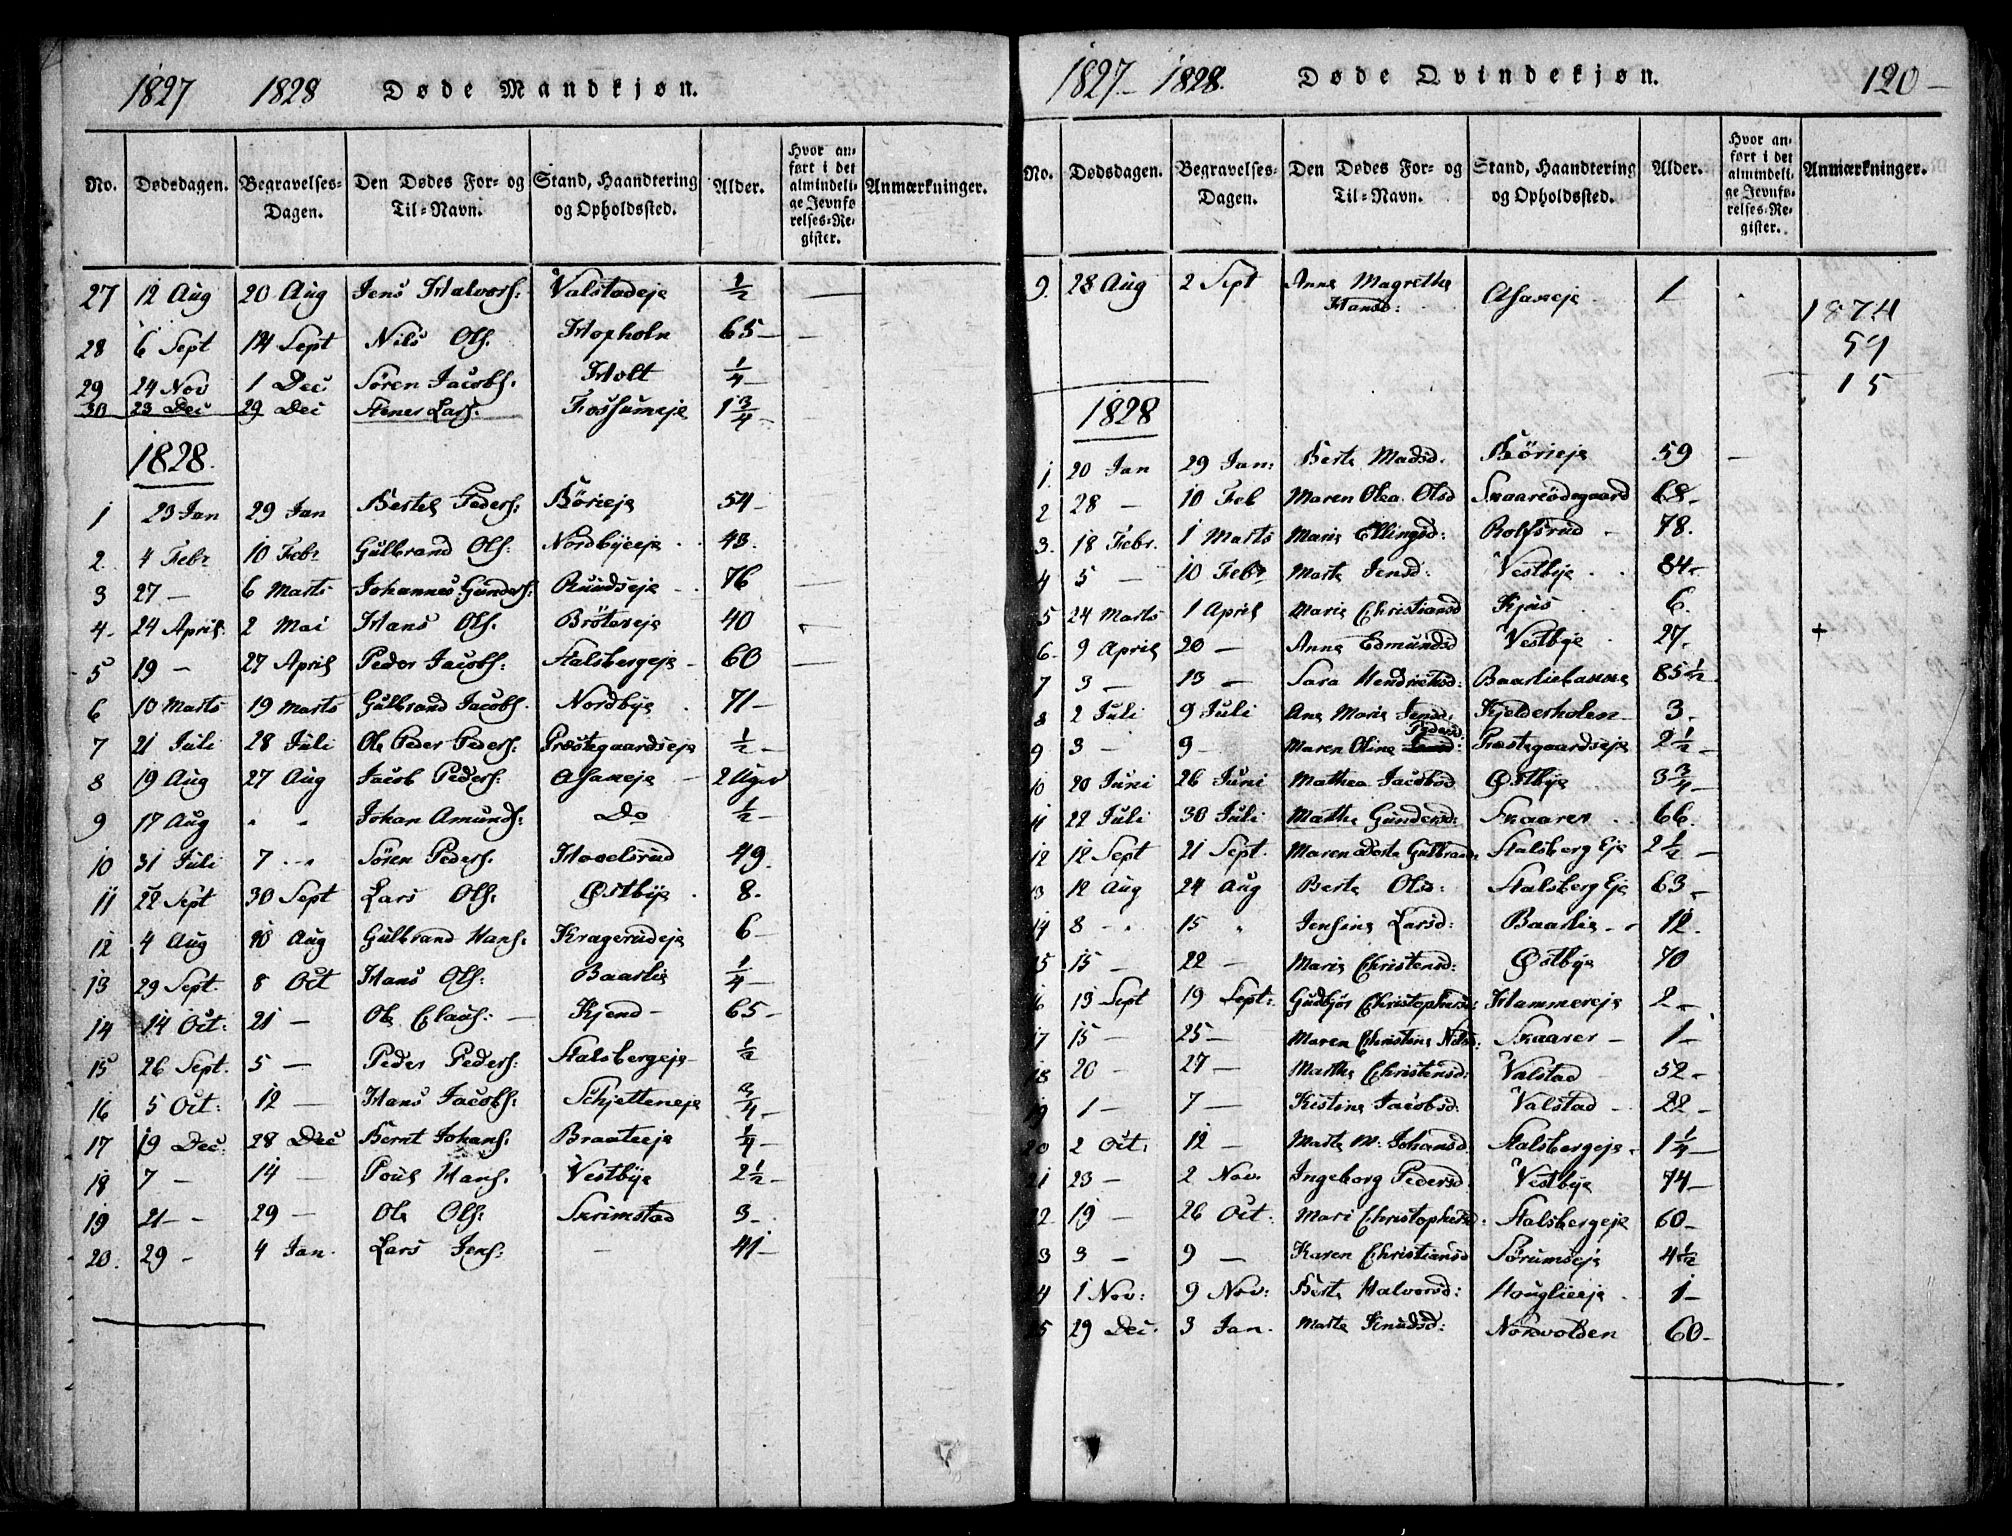 1827 1828 Døde Mandkjøn.
No. Dødsdagen. Begravelses-Dagen. Den Dødes For- og Til-Navn. Stand, Haandtering og Opholdssted. Alder. Hvor anført i det almindelige Jevnførelses-Register. Anmærkninger.
27 12 Aug 20 Aug Jens Halvors: Valstadeje 1/2 —
28 6 Sept 14 Sept Nils Ols: Hopholn 65 — —
29 24 Nov 1 Dec Søren Jacobs: Holt 1/4 —
30 23 Dec 29 Dec Stener Lars: Fossumeje 1 3/4 —
1828.
1 23 Jan 29 Jan Bertel Peders: Börieje 54 —
2 4 Febr 10 Febr Gulbrand Ols: Nordbyeeje 43.
3 27 — 6 Marts Johannes Gunders: Ruudseje 76 —
4 24 April 2 Mai Hans Ols: Brötereje 40 —
5 19 — 27 April Peder Jacobs: Stalsbergeje — 60 —
6 10 Marts 19 Marts Gulbrand Jacobs. Nordbye 71 —
7 21 Juli 28 Juli Ole Peder Peders: Præstegaardseje 1/2 —
8 19 Aug 27 Aug Jacob Peders: Asaneje — 2 Uger
9 17 Aug " " Johan Amunds: Do 1/2 —
10 31 Juli 7 " Søren Peders. Hovelsrud 49.
11 22 Sept 30 Sept Lars Ols: Østbye 8.
12 4 Aug 10 Aug Gulbrand Hans: Kragerudeje 6 —
13 29 Sept. 8 Oct Hans Ols: Baarlie 1/4 —
14 14 Oct: 21 — Ole Claus: — Kjend — 65 —
15 26 Sept. 5 — Peder Peders: Stalsbergeje 1/2
16 5 Oct: 12 — Hans Jacobs: Schjetteneje 3/4 —
17 19 Dec: 28 Dec Bernt Johans: Braateeje 1/4 —
18 7 — 14 — Poul Hans. Vestbye 2 1/2 —
19 21 — 29 — Ole Ols: Skrimstad 3 —
20. 29 — 4 Jan. Lars Jens: — 41 —
1827 — 1828. Døde Qvindekjøn. 120 —
No. Dødsdagen. Begravelses-Dagen. Den Dødes For- og Til-Navn. Stand, Haandtering og Opholdssted. Alder. Hvor anført i det almindelige Jevnførelses-Register. Anmærkninger.
9. 28 Aug 2 Sept Anne Magrethe Hansd: Asaneje 1
1874
59
15
1828
1. 20 Jan 29 Jan: Berte Madsd. Börieje 59 —
2 28 — 10 Feb Maren Olea Olsd Skaarerödegaard 68 —
3. 18 Febr. 1 Marts Marie Ellingsd: Rolfsrud — 78.
4 5 — 10 Febr Marte Jensd: Vestbye 84 —
5 24 Marts 1 April Marie Christiansd Kjus 6.
6 9 April 20 — Anne Edmundsd Vestbye 27. +
7 3 — 13 — Sara Hendriksd: Baarliebakke 85 1/2
8 2 Juli 9 Juli Ane Marie Jensd: Kjelderholen — 3 —
9 3 — 9 — Maren Oline Pedersd: Præstegaardseje 2 1/2 —
10 20 Juni 26 Juni Mathea Jacobsd Østbye 3 3/4 —
11 22 Juli 30 Juli Marthe Gundersd: Skaarer 66.
12 12 Sept 21 Sept. Maren Dorte Gulbrands: Stalsberg Eje 2 1/2 —
13 12 Aug 24 Aug Berte Olsd: Stalsberg Eje 63 —
14 8 — 15 " Jensine Larsd: Baarlie — 12.
15 15 — 22 — Marie Christensd: Østbye 70
16 13 Sept 19 Sept: Gudbjør Christophersd: Hammereje 2 —
17 15 — 25 — Maren Christine Nilsd: Skaarer — 1 —
18 20 — 27 — Marthe Christensd: Valstad 52 —
19 1 — 7 — Kistine Jacobsd: Valstad — 22 —
20 2 Oct: 12 — Marte M: Johansd. Stalsbergeje. 1 1/4 —
21 23 — 2 Nov. Ingeborg Pedersd: Vestbye 74 —
22 19 — 26 Oct: Mari Christophersd: Stalsbergeje 60 —
23 3 — 9 — Karen Christiansd Sørumseje 4 1/2
24 1 Nov: 9 Nov: Berte Halvorsd: Houglieeje 1 —
25 29 Dec. 3 Jan. Marte Knudsd: Nordvolden 60 —